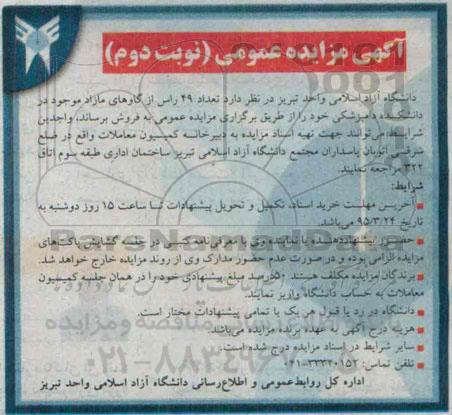 آگهی مزایده عمومی (نوبت دوم)
دانشگاه آزاد اسلامی واحد تبریز در نظر دارد تعداد ۴۹ راس از گاوهای مازاد موجود در
دانشکده دامپزشکی خود را از طریق برگزاری مزایده عمومی به فروش برساند، واجدین
شرایط می‌توانند جهت تهیه اسناد مزایده به دبیرخانه کمیسیون معاملات واقع در ضلع
شرقی اتوبان پاسداران مجتمع دانشگاه آزاد اسلامی تبریز ساختمان اداری طبقه سوم اتاق
۳۲۲ مراجعه نمایند.
شرایط:
آخرین مهلت خرید اسناد، تکمیل و تحویل پیشنهادات تا ساعت ۱۵ روز دوشنبه به
تاریخ ۹۵/۳/۲۴ می‌باشد.
حضور پیشنهاددهنده یا نماینده وی با معرفی‌نامه کتبی در جلسه گشایش پاکت‌های
مزایده الزامی بوده و در صورت عدم حضور مدارک وی از روند مزایده خارج خواهد شد.
برندگان مزایده مکلف هستند ۵۰درصد مبلغ پیشنهادی خود را در همان جلسه کمیسیون
معاملات به حساب دانشگاه واریز نمایند.
دانشگاه در رد یا قبول هر یک یا تمامی پیشنهادات مختار است.
هزینه درج آگهی به عهده برنده مزایده می‌باشد.
سایر شرایط در اسناد مزایده درج شده است.
تلفن تماس: ۳۳۳۲۰۱۵۲-۰۴۱
اداره کل روابط‌عمومی و اطلاع‌رسانی دانشگاه آزاد اسلامی واحد تبریز